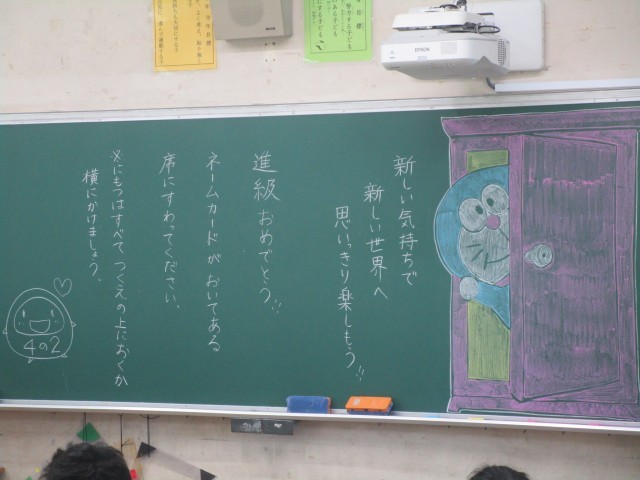 新しい気持ちで
新しい世界へ
思いっきり楽しもう!!
進級おめでとう!!
ネームカードがおいてある
席にすわってください。
※にもつはすべてつくえの上におくか
横にかけましょう。
4の2
EPSON